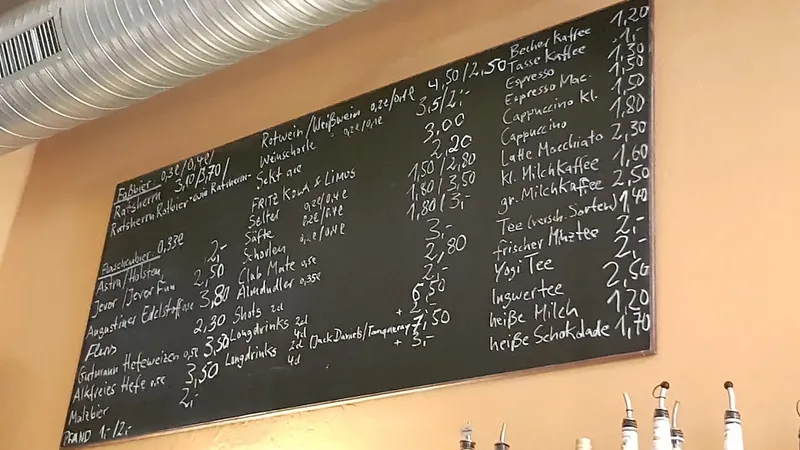 Faßbier 0,3l/0,4l
Ratsherrn 3,10/3,70/
Ratsherrn Rotbier
Flaschenbier 0,33l
Astra/Holsten 2,-
Jever/Jever Fun 2,50
Augustiner Edelstoff 0,5l 3,80
Flens 2,30
Gutmann Hefeweizen 0,5l 3,50
Alkfreies Hefe 0,5l 3,50
Malzbier 2,-
PFAND 1,-/2,-
Rotwein/Weißwein 0,2l/0,1l 4,50/2,50
Weinschorle 0,2l/0,1l 3,5/2,-
Sekt 3,00
FRITZ KOLA & LIMOS 2,20
Selter 0,2l/0,4l 1,50/2,80
Säfte 0,2l/0,4l 1,80/3,50
Schorlen 0,2l/0,4l 1,80/3,-
Club Mate 0,5l 3,-
Almdudler 0,35l 2,80
Shots 2cl 2,-
Longdrinks 2cl 5,50
4cl + 2,-
Longdrinks 2cl (Jack Daniels/Tanqueray) 7,50
4cl + 3,-
Becher Kaffee 1,20
Tasse Kaffee 1,-
Espresso 1,30
Espresso Mac. 1,50
Cappuccino Kl. 1,50
Cappuccino 1,80
Latte Macchiato 2,30
kl. Milchkaffee 1,60
gr. Milchkaffee 2,50
Tee (versch. Sorten) 1,40
frischer Minztee 2,-
Yogi Tee 2,-
Ingwertee 2,50
heiße Milch 1,20
heiße Schokolade 1,70